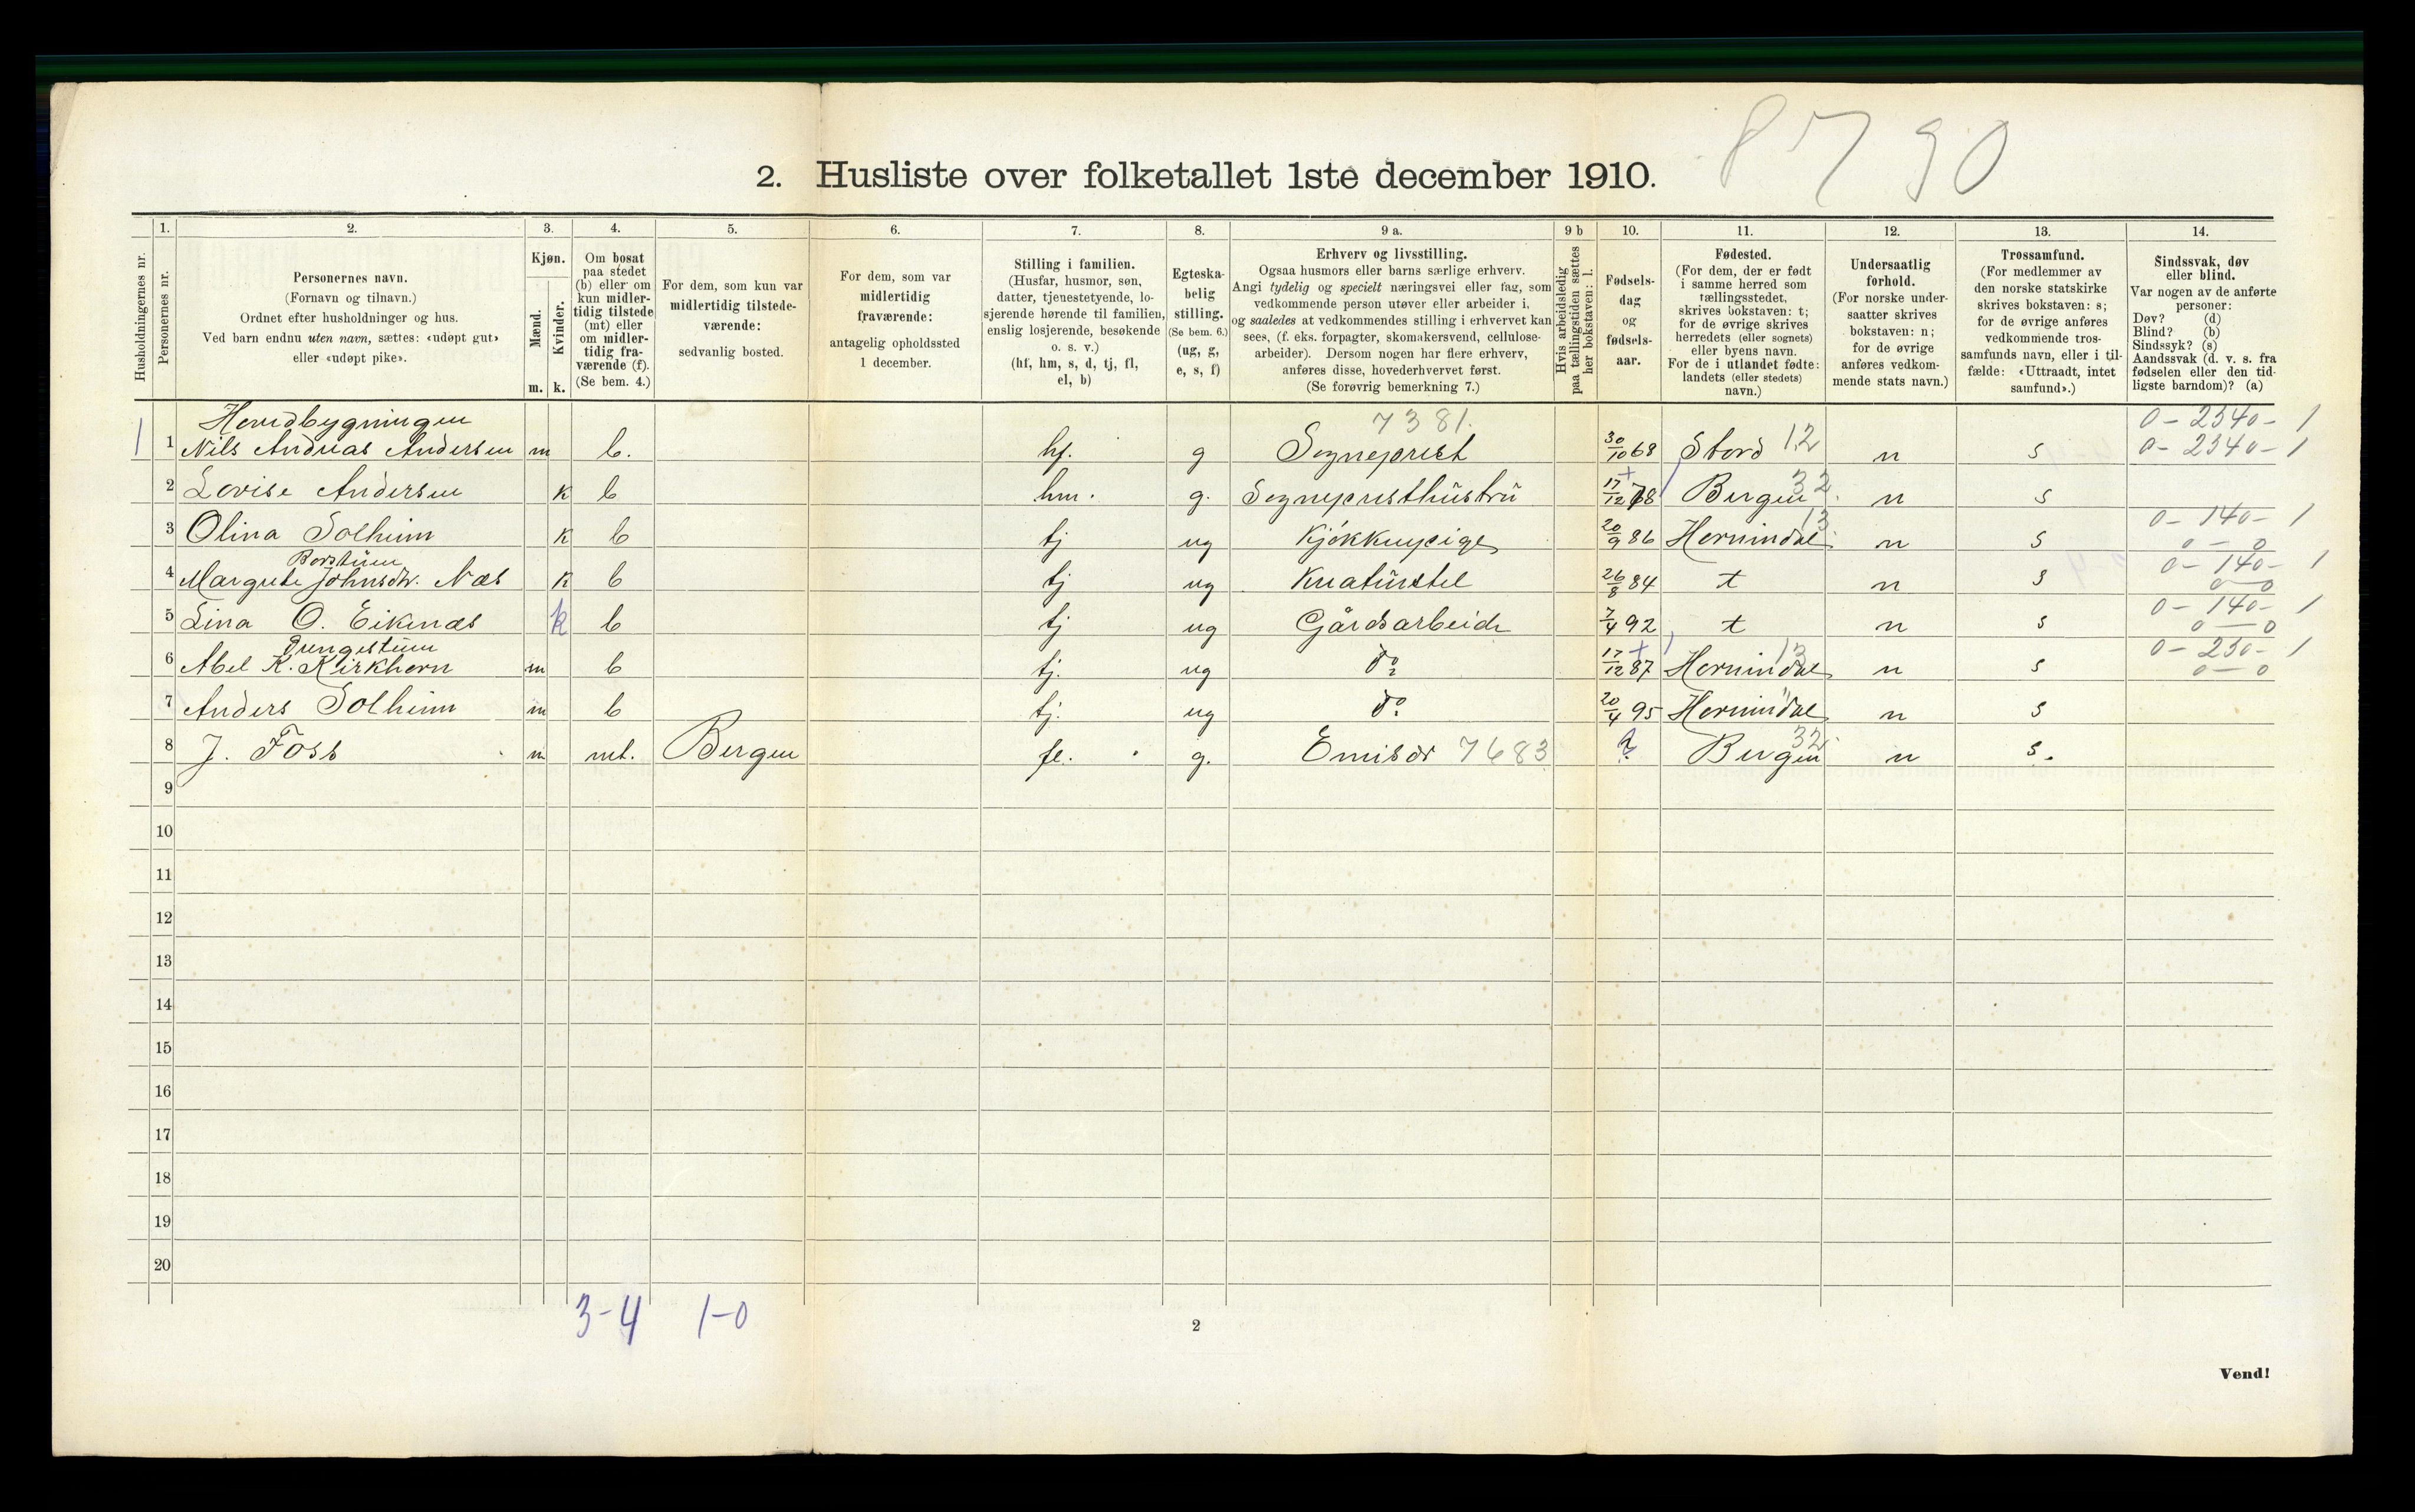 8790
2. Husliste over folketallet 1ste december 1910.
Husholdningernes nr.
1.
Personernes nr.
2.
Personernes navn.
(Fornavn og tilnavn.)
Ordnet efter husholdninger og hus.
Ved barn endnu uten navn, sættes: «udøpt gut»
eller «udøpt pike».
3.
Kjøn.
Mænd.
Kvinder.
m. k.
4.
Om bosat
paa stedet
(b) eller om
kun midler-
tidig tilstede
(mt) eller
om midler-
tidig fra-
værende (f).
(Se bem. 4.)
5.
For dem, som kun var
midlertidig tilstede-
værende:
sedvanlig bosted.
6.
For dem, som var
midlertidig
fraværende:
antagelig opholdssted
1 december.
7.
Stilling i familien.
(Husfar, husmor, søn,
datter, tjenestetyende, lo-
sjerende hørende til familien,
enslig losjerende, besøkende
o. s. v.)
(hf, hm, s, d, tj, fl,
el, b)
8.
Egteska-
belig
stilling.
(Se bem. 6.)
(ug, g,
e, s, f)
9 a.
Erhverv og livsstilling.
Ogsaa husmors eller barns særlige erhverv.
Angi tydelig og specielt næringsvei eller fag, som
vedkommende person utøver eller arbeider i,
og saaledes at vedkommendes stilling i erhvervet kan
sees, (f. eks. forpagter, skomakersvend, cellulose-
arbeider). Dersom nogen har flere erhverv,
anføres disse, hovederhvervet først.
(Se forøvrig bemerkning 7.)
9 b
Hvis arbeidsledig
paa tællingstiden sættes
her bokstaven: l.
10.
Fødsels-
dag
og
fødsels-
aar.
11.
Fødested.
(For dem, der er født
i samme herred som
tællingsstedet,
skrives bokstaven: t;
for de øvrige skrives
herredets (eller sognets)
eller byens navn.
For de i utlandet fødte:
landets (eller stedets)
navn.)
12.
Undersaatlig
forhold.
(For norske under-
saatter skrives
bokstaven: n;
for de øvrige
anføres vedkom-
mende stats navn.)
13.
Trossamfund.
(For medlemmer av
den norske statskirke
skrives bokstaven: s;
for de øvrige anføres
vedkommende tros-
samfunds navn, eller i til-
fælde: «Uttraadt, intet
samfund».)
14.
Sindssvak, døv
eller blind.
Var nogen av de anførte
personer:
Døv? (d)
Blind? (b)
Sindssyk? (s)
Aandssvak (d. v. s. fra
fødselen eller den tid-
ligste barndom)? (a)
Hovedbygningen 7381. 0 - 2340 - 1
1 1 Nils Andreas Andersen m b. hf. g Sogneprest 30/10 68 Stord 12 n s 0 - 2340 - 1
2 Lovise Andersen k b hm. g. Sognepresthustru 17/12 78 Bergen 32 n s
3 Olina Solheim k b tj ug Kjøkkenpige 20/9 86 Hornindal 13 n s 0 - 140 - 1
0 - 0
Borstuen
4 Margrete Johnsdtr. Næs k b tj ug Kreaturstel 26/8 84 t n s 0 - 140 - 1
0 - 0
5 Lina O. Eiknæs k b tj ug Gårdsarbeide 7/4 92 t n s 0 - 140 - 1
0 - 0
Drengestuen
6 Abel K. Kirkhorn m b tj. ug do 17/12 87 Hornindal 13 n s 0 - 230 - 1
0 - 0
7 Anders Solheim m b tj. ug do 20/4 95 Hornindal " n s
8 J. Foss m mt. Bergen fl. g. Emisær 7683 ? Bergen 32 n s.
9
10
11
12
13
14
15
16
17
18
19
20
3-4 1-0
2
Vend!